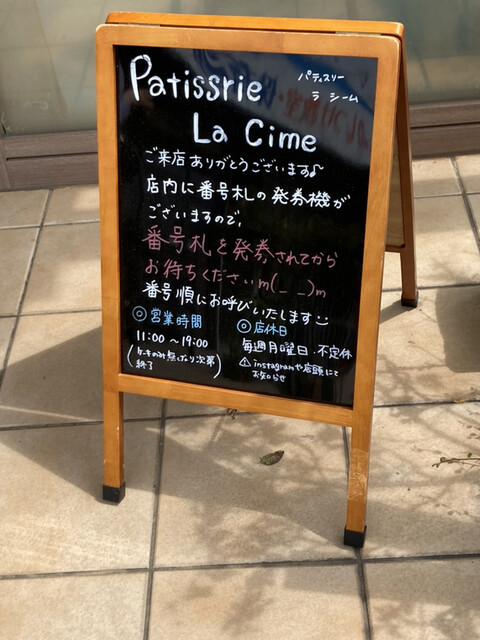 Patissrie
パティスリー
ラ シーム
La Cime
ご来店ありがとうございます♪
店内に番号札の発券機が
ございますので、
番号札を発券されてから
お待ちくださいm(_ _)m
番号順にお呼びいたします☺
◎営業時間
11:00 ~ 19:00
終了
◎店休日
毎週月曜日・不定休
⚠instagramや店頭にて
お知らせ